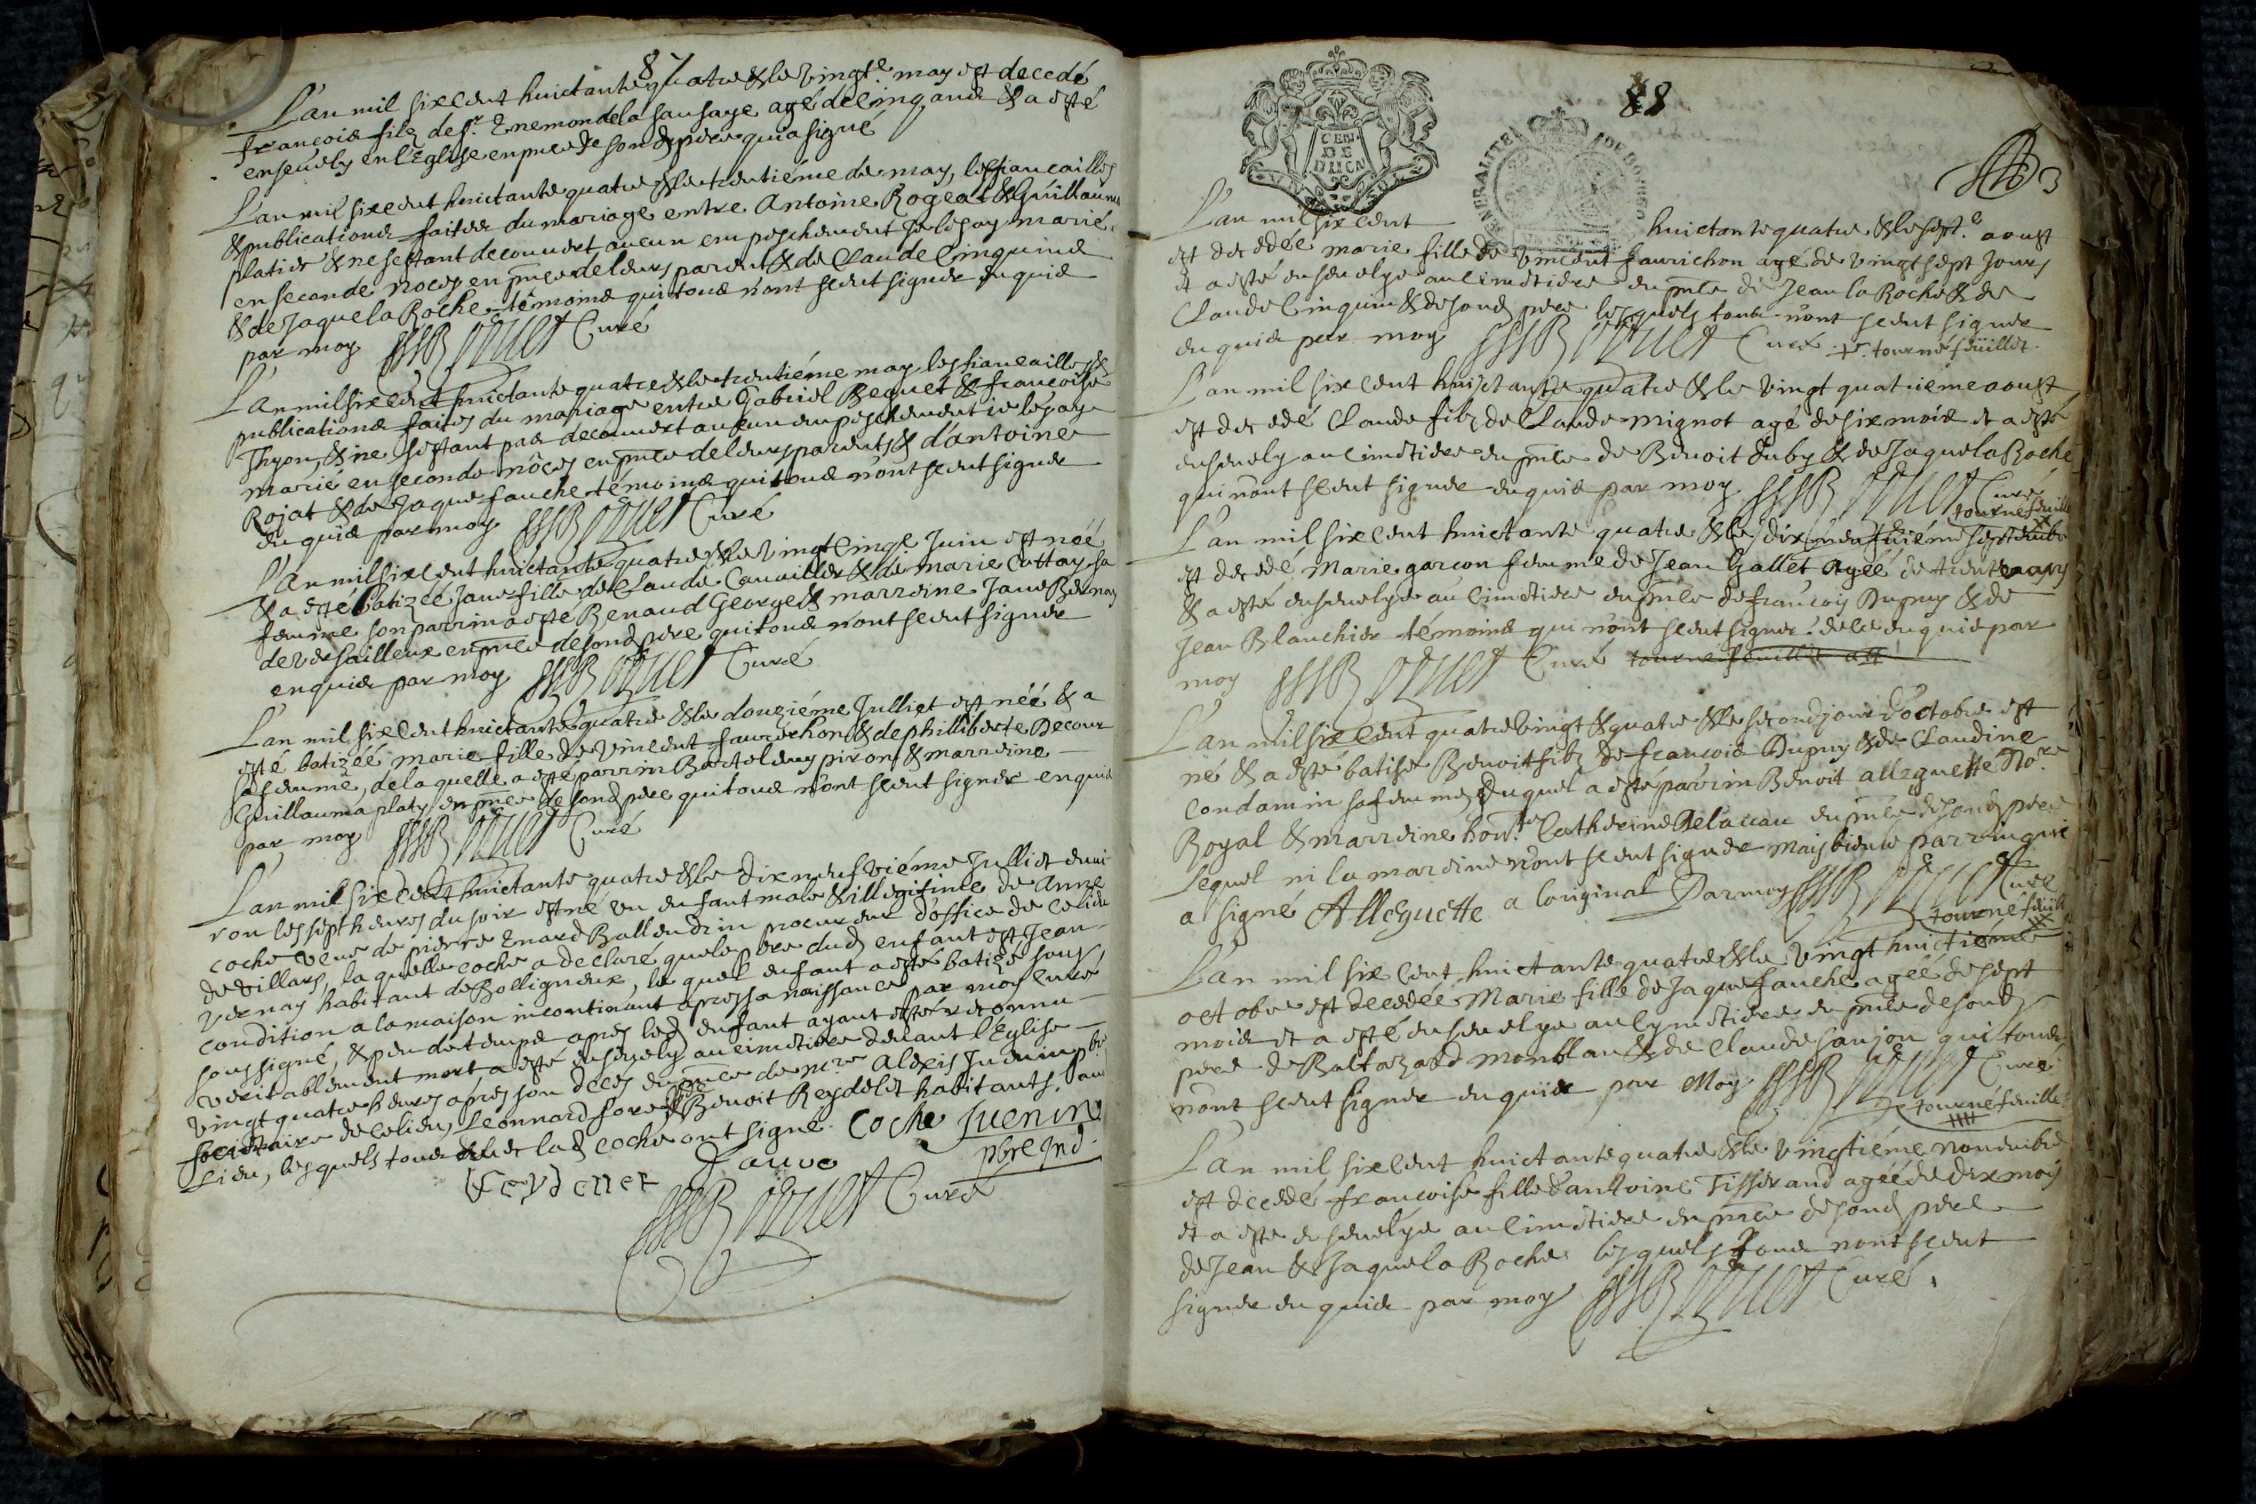 87
L'an mil six cent huictante quatre & le vingt.e may est decedé
francois filz de sr. Enemon de la sausaye agé de cinq ans & a esté
ensevely en l'Eglise en pnce de sond pere qui a signé
L'an mil six cent huictante quatre & le trentiéme de may, les fiancailles
& publications faites du mariage entre Antoine Rogeat & Guillauma
platier & ne sestant decouvert aucun empeschement Je les ay mariés
en seconde noces en pnce de leurs parents & de Claude Cinquin
& de Jaque la Roche témoins qui tous n'ont sceut signer enquis
par moy Curé
L'an mil six cent huictante quatre & le trentiéme may les fiancailles &
publications faites du mariage entre Gabriel Bequet & francoise
Thyon, & ne sestant pas decouvert aucun empeschement ie les ay
marié en seconde nôces en pnce de leurs parents & d'antoine
Rojat & de Jaque fauche témoins qui tous n'ont sceut signer
enquis par moy Curé
L'an mil six cent huictante quatre & le vingt cinqe Juin est néé
& a esté batizéé Jane fille de Claude Cavailler & de marie Cottay sa
femme son parrin a esté Benaud George & marreine Jane Bernay
de versailleux en pnce de sond pere qui tous n'ont sceut signer
enquis par moy Curé
L'an mil six cent huictante quatre & le douziéme Julliet est néé & a
esté batizéé marie fille de vincent faurichon & de philliberte Decour
sa femme, de laquelle a esté parrin Bartelemy piron & marreine
Guillauma platy en pnce de sond pere qui tous n'ont sceut signer enquis
par moy Curé
L'an mil six cent huictante quatre & le dix neufviéme Julliet envi
ron les sept heures du soir est né un enfant male & illegitime de anne
coche veuve de pierre Enard Ballendrin procureur d'office de ce lieu
de villars, la quelle coche a declaré que le pere dud enfant est Jean
vernay habitant de Bolligneux, le quel enfant a esté batizé sous
condition a la maison incontinant apres sa naissance par moy curé
soussigné, & peu de temps apres led enfant ayant esté reconnu
veritablement mort a esté ensevely au cimetiere devant l'Eglise
vingt quatre heures apres son deces en pnce de mre Alexis Juenin pbr
societaire de ce lieu, Leonnard fore & Benoit Reydelet habitants, aud
Lieu, les quels tous avec lad coche ont signé. Coche Juenin
pbre Ind.
Reydellet faure
Curé
88
CEN
DE
DUCA
L'an mil six cent huictante quatre & le sept.e aoust
est decedée marie fille de vincent faurichon agé de vingt sept Jours
et a esté ensevelye au cimetiere en pnce de Jean la Roche & de
Claude Cinquin & de sond pere les quels tous n'ont sceut signer
enquis par moy Curé + tourné feüillet.
L'an mil six cent huictante quatre & le vingt quatriéme aoust
est decedé Claude filz de Claude mignot agé de six mois et a esté
ensevely au cimetiere en pnce de Benoit Duby & de Jaque la Roche
qui n'ont sceut signer enquis par moy Curé
tourné feuille
L'an mil six cent huictante quatre & le dix neufviéme septembre
est decedé Marie garcon femme de Jean Gallet agéé de trente ans
& a esté ensevelye au cimetiere en pnce de francois Dupuy & de
Jean Blanchier témoins qui n'ont sceut signer de ce enquis par
moy Curé tourné feuillet
L'an mil six cent quatre vingt & quatre & le second jour d'octobre est
né & a esté batisé Benoit filz de francois Dupuy & de Claudine
Condamin sa femme, Duquel a esté parrin Benoit alleguette No.re
Royal & marreine hon.te Catherine Delavau en pnce de sond pere
Lequel ni la mareine n'ont sceut signer mais bien le parrin qui
a signé Alleguette a loriginal Par moy Curé
tourné feüil
L'an mil six cent huictante quatre & le vingt huictiéme
octobre est decedéé Marie fille de Jaque fauche agéé de sept
mois et a esté ensevelye au cymetiere en pnce de sond
pere de Baltazard monblan & de Claude sanjon qui tous
n'ont sceut signer enquis par Moy Curé
tourné feuille
L'an mil six cent huictante quatre & le vingtiéme novembre
est decedé francoise fille d'antoine Tisserand agéé de dix mois
et a esté ensevelye au cimetiere en pnce de sond pere
de Jean & Jaque la Roche les quels tous n'ont sceut
signer enquis par moy Curé.